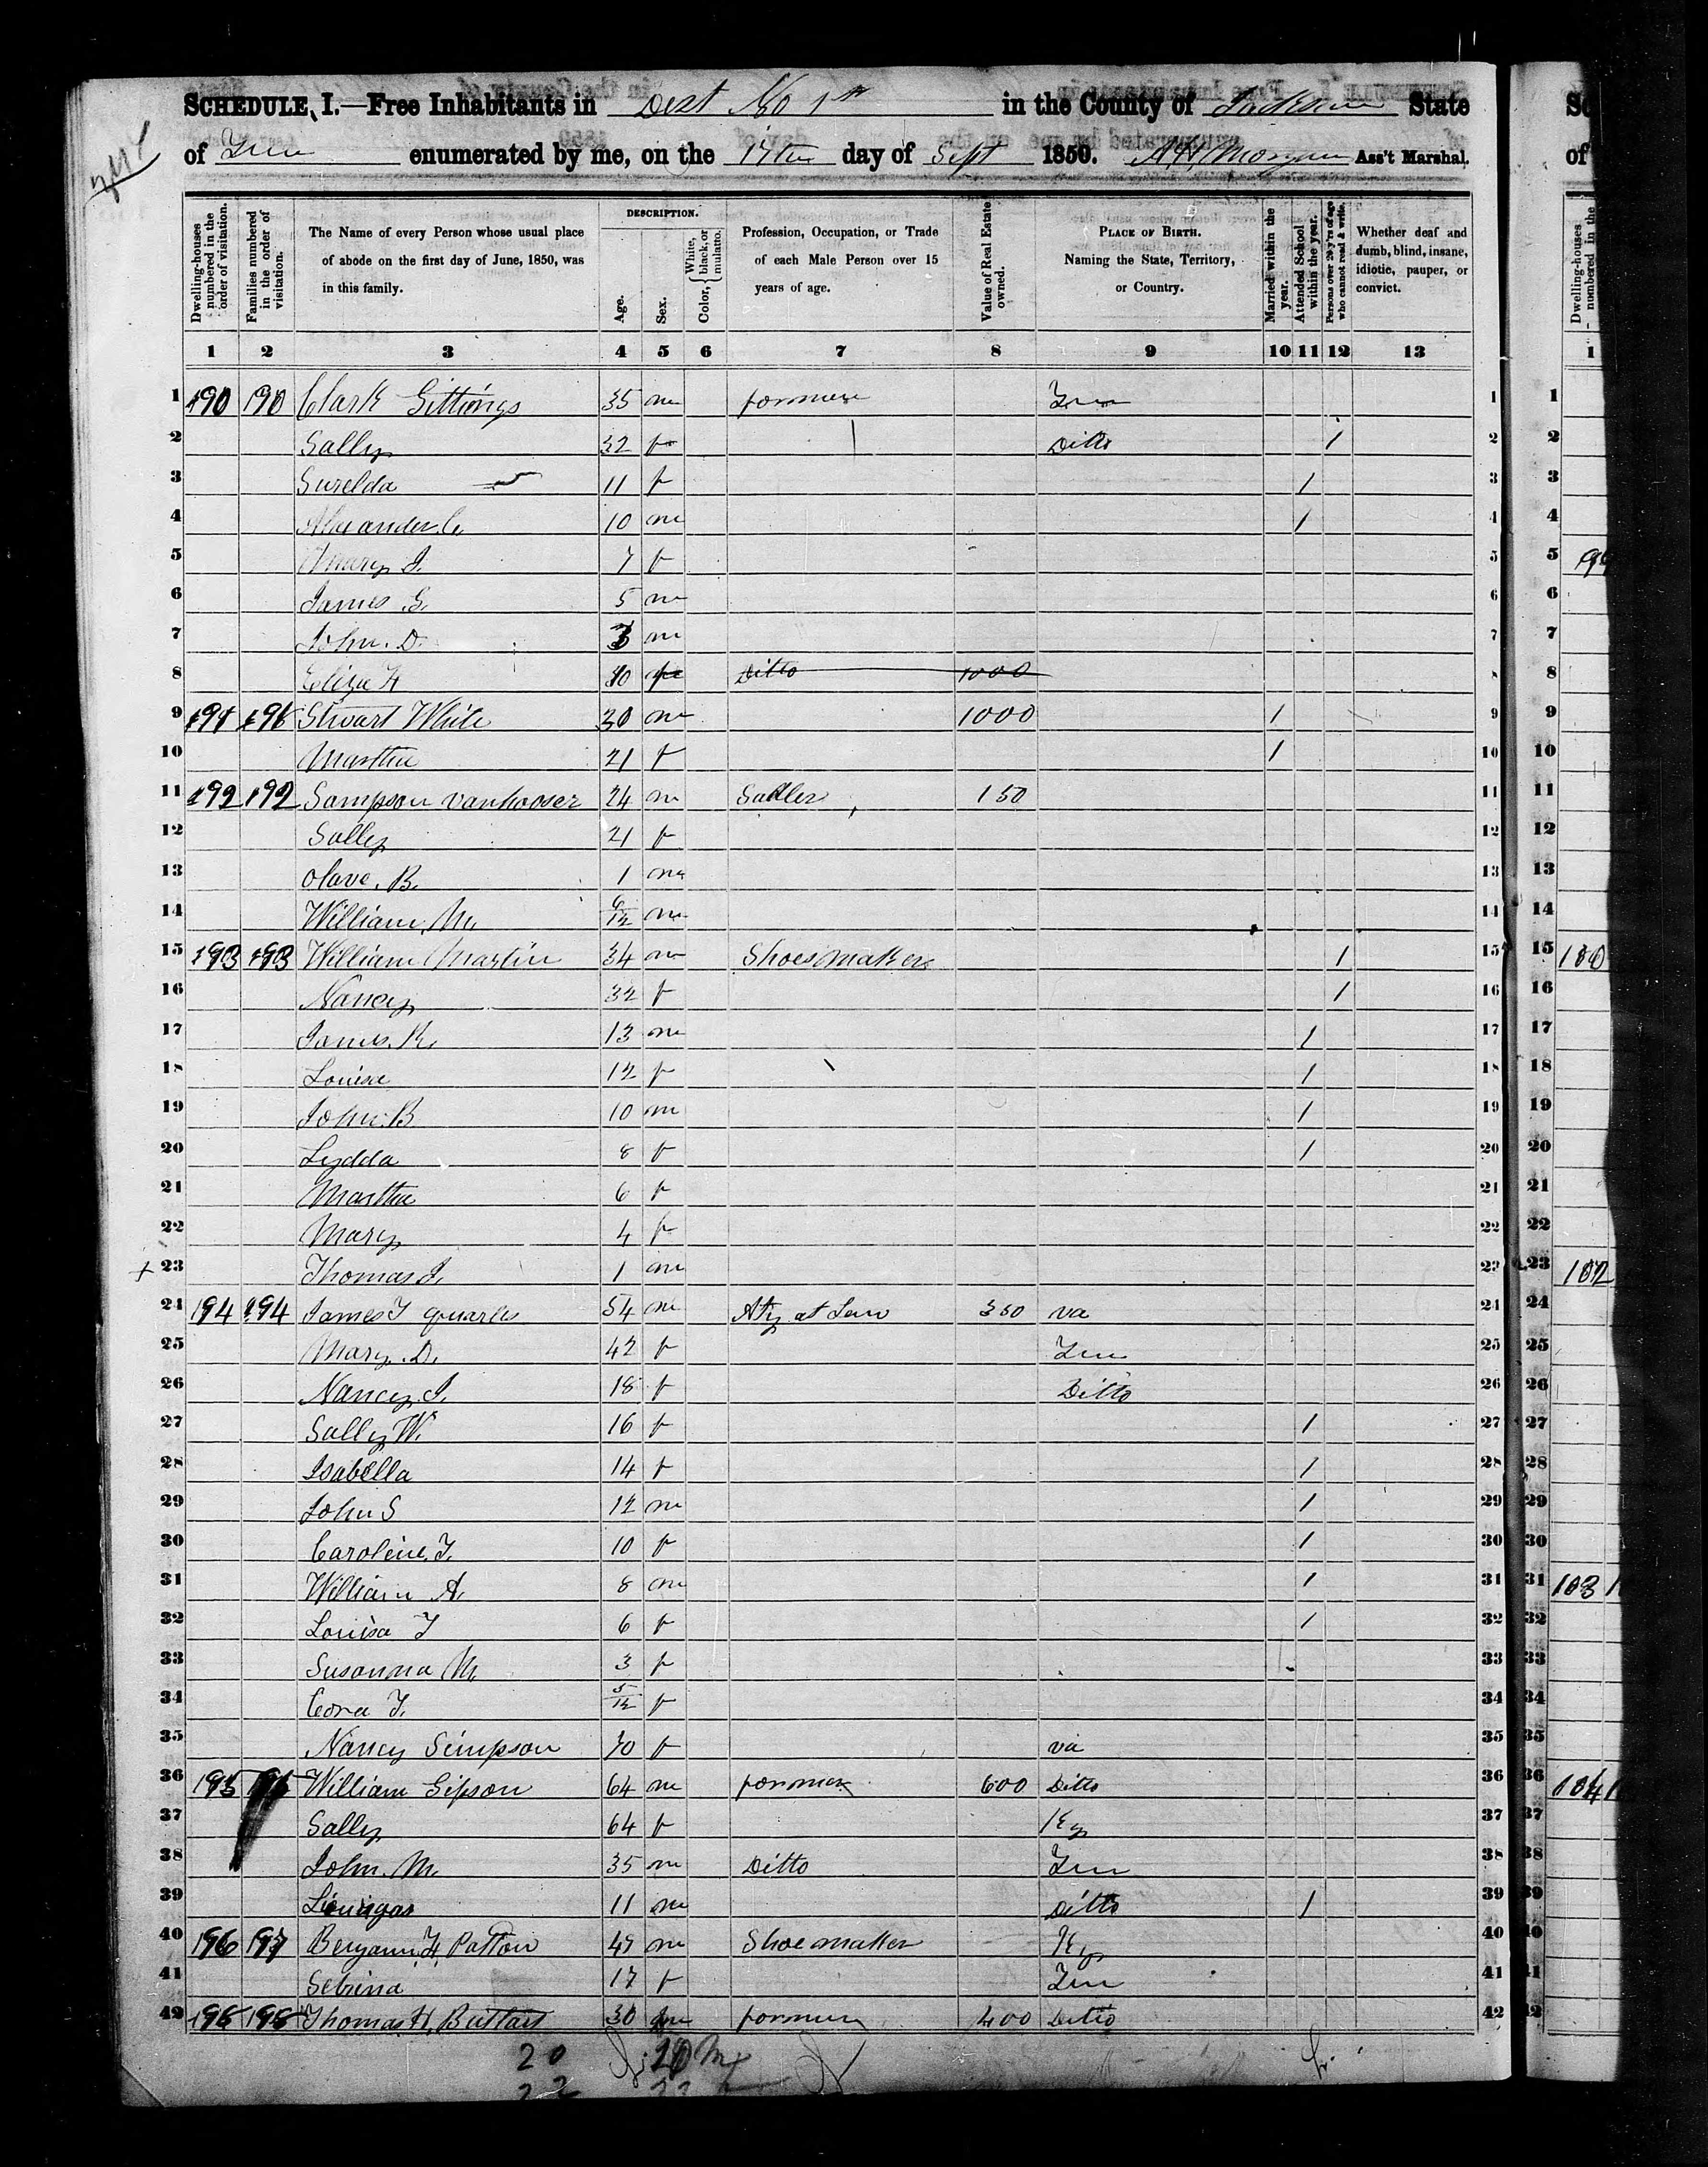 SCHEDULE, I.—Free Inhabitants in Dist No 1st in the County of Jackson State
of Tenn enumerated by me, on the 17th day of Sept 1850. A H Morgan Ass't Marshal.
Dwelling-houses numbered in the order of visitation.
Families numbered in the order of visitation.
The Name of every Person whose usual place of abode on the first day of June, 1850, was in this family.
DESCRIPTION.
Age.
Sex.
Color, White, black, or mulatto.
Profession, Occupation, or Trade of each Male Person over 15 years of age.
Value of Real Estate owned.
PLACE OF BIRTH. Naming the State, Territory, or Country.
Married within the year.
Attended School within the year.
Persons over 20 y'rs of age who cannot read & write.
Whether deaf and dumb, blind, insane, idiotic, pauper, or convict.
1 2 3 4 5 6 7 8 9 10 11 12 13
1 190 190 Clark Gittings 35 m farmer Tenn 1
2 Sally 32 f Ditto 1 2
3 Surelda 11 f 1 3
4 Alexander C. 10 m 1 4
5 Mary J. 7 f 5
6 James G. 5 m 6
7 John. D. 3 m 7
8 Eliza H Ditto 1000 8
9 191 Stuart White 30 m 1000 1 9
10 Martha 21 f 1 10
11 192 192 Sampson vanhooser 24 m Sadler 150 11
12 Sally 21 f 12
13 olave. B. 1 m 13
14 William. M. 6/12 m 14
15 193 193 William Martin 34 m Shoesmaker 1 15
16 Nancy 32 f 1 16
17 James. K. 13 m 1 17
18 Louisa 12 f 1 18
19 John. B 10 m 1 19
20 Lydda 8 f 1 20
21 Martha 6 f 21
22 Mary 4 f 22
23 Thomas J. 1 m 23
24 194 194 James T quarles 54 m Aty at Law 350 va 24
25 Mary. D. 42 f Tenn 25
26 Nancy. J. 18 f Ditto 26
27 Sally W. 16 f 1 27
28 Isabella 14 f 1 28
29 John S 12 m 1 29
30 Caroline. T. 10 f 1 30
31 William A. 8 m 1 31
32 Louisa T 6 f 1 32
33 Susanna M. 3 f 33
34 Cora T. 5/12 f 34
35 Nancy Simpson 70 f va 35
36 195 William Gipson 64 m farmer 600 Ditto 36
37 Sally 64 f Ky 37
38 John. M. 35 m Ditto Tenn 38
39 11 m Ditto 1 39
40 196 197 Benjamin H. Patton 47 m Shoemaker Ky 40
41 Sebrina 17 f Tenn 41
42 Thomas H. 30 m farmer 400 Ditto 42
20 20 M